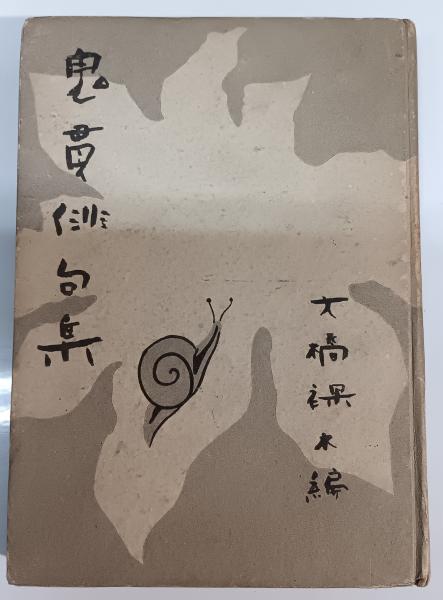 鬼貫俳句集
大橋裸木編